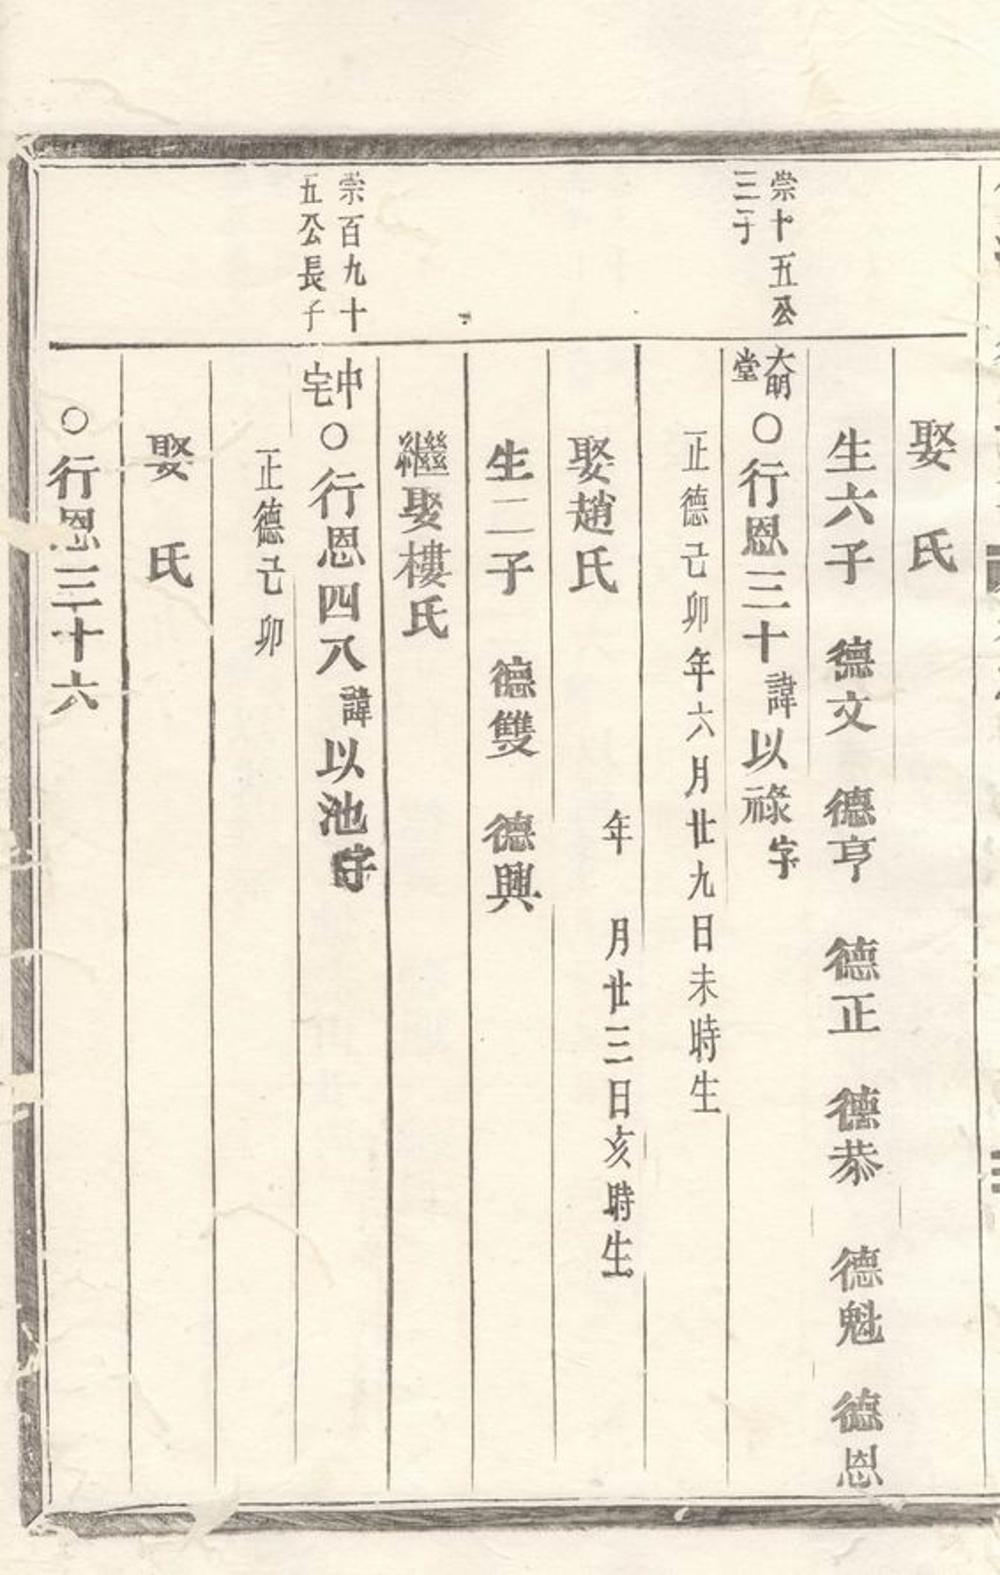 娶　氏
生六子　德文　德亨　德正　德恭　德魁　德恩
崇十五公
三子
大明
堂
○行恩三十諱以祿字
正德己卯年六月廿九日未時生
年　月廿三日亥時生
娶趙氏
生二子　德雙　德興
繼娶樓氏
崇百九十
五公長子
中
宅
○行恩四八諱以池字
正德己卯
娶　氏
○行恩三十六